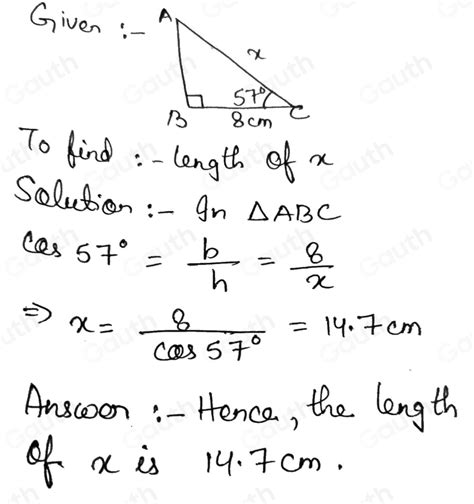 Given :-
A
x
57°
B
8cm
C
To find :- length of x
Solution :- In △ABC
cos 57° = b/h = 8/x
⇒ x = 8/cos 57° = 14.7 cm
Answer :- Hence, the length
of x is 14.7 cm.
Gauth